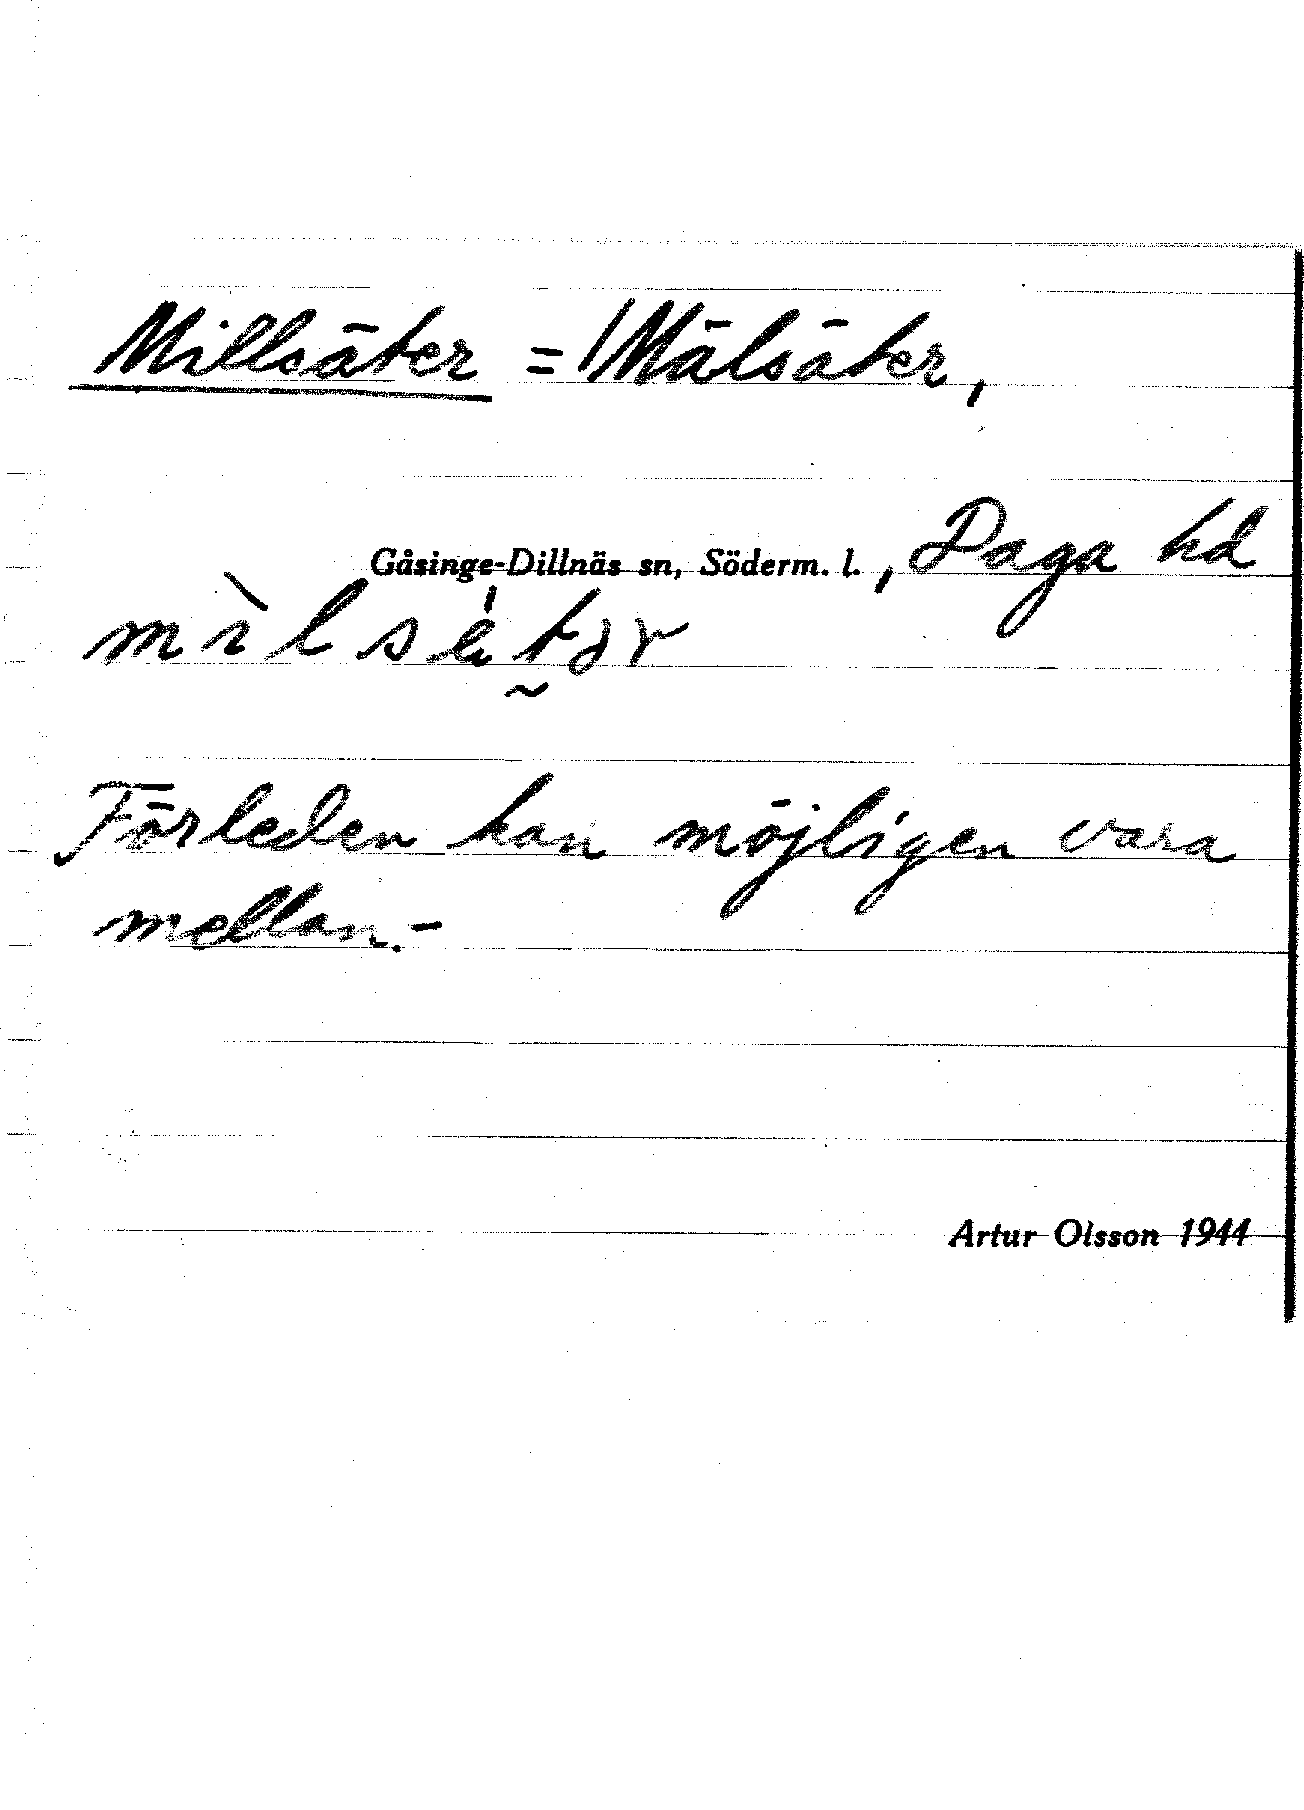 Millsäter = /Mälsäter,
Gåsinge-Dillnäs sn, Söderm. l., Daga hd
mìlsètər
Förleden kan möjligen vara
mellan.-
Artur Olsson 1944